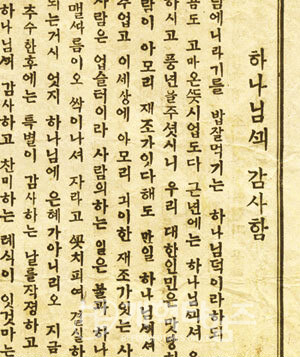 하나님ᄭᅦ 감사함
님에니라기를 밥잘먹기는 하나님덕이라하도
곰도 고마온ᄯᅳᆺ시업도다 근년에는 하나님ᄭᅦ셔 우
하시고 풍년을주셧시니 우리 대한인민은 마당히
람이 아모리 재조가잇다해도 만일 하나님ᄭᅦ셔
주업고 이세상에 아모리 긔이한 재조가잇는 사
사람은 업슬터이라 사람의하는 일은 불과 하나
싹이나셔 자라고 ᄭᅩᆺ치픠여 결실하
되는거시 엇지 하나님에 은혜가아니리오 지금
추수한후에는 특별이 감사하는 날를작뎡하고
하나님ᄭᅦ 감사하고 찬미하는 례식이 잇것마는